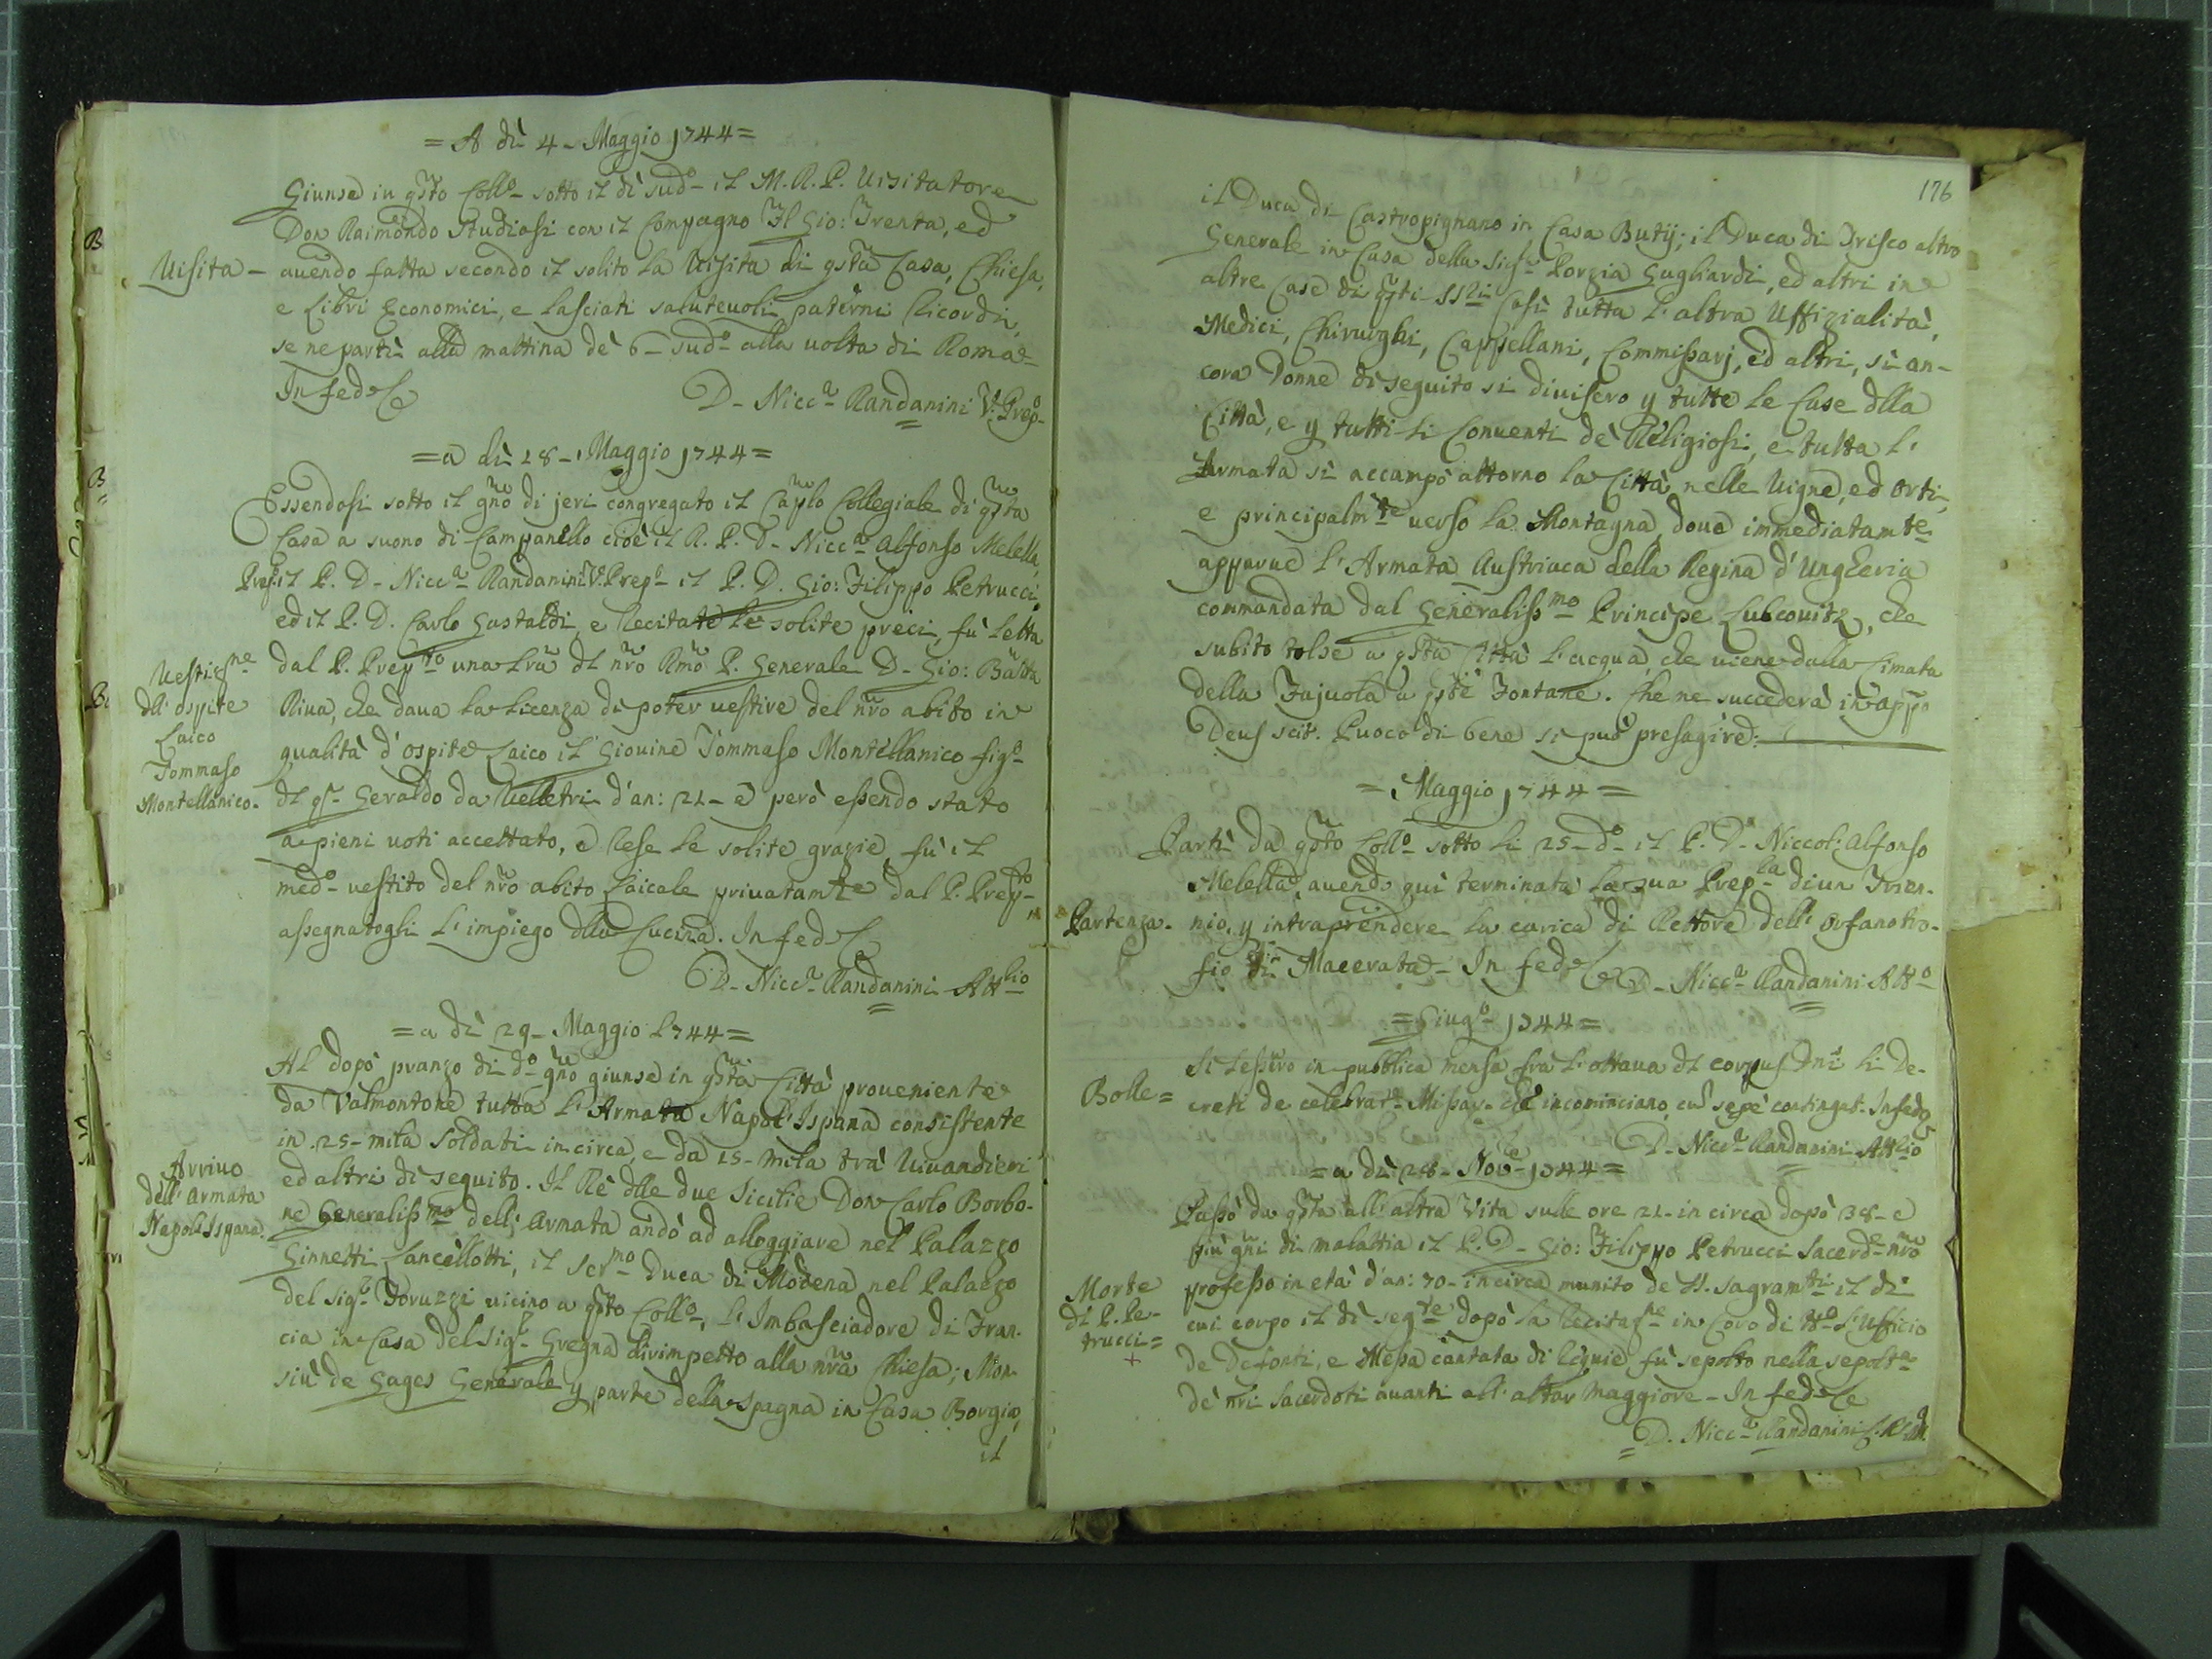 = A dì 4 - Maggio 1744 =
Giunse in qsto Collo - sotto il dì sudo - il M. R. P. Uisitatore
Don Raimondo Studiosi con il Compagno Fl Gio: Trenta, ed
Uisita - auendo fatta secondo il solito la Uisita di qsta Casa, Chiesa,
e Libri Economici, e lasciati saluteuoli, paterni Ricordi,
se ne partì alla mattina de 6 - sudo alla uolta di Roma -
In fede
D - Niccª Randanini V. Prepo
= a dì 28 - Maggio 1744 =
Essendosi sotto il gno di jeri congregato il Caplo Collegiale di qsta
Casa a suono di Campanello cioè il R. P. D - Niccª Alfonso Melella
Prepo. il P. D - Niccª Randanini V. Prepo - il P. D. Gio: Filippo Petrucci,
ed il P. D. Carlo Gastaldi, e recitate le solite preci, fù letta
dal P. Prepto una lra dl nro Rmo P. Generale D - Gio: Batta
Riua, che daua la licenza di poter uestire del nro abito in
qualità d'ospite Laico il Giouine Tommaso Montellanico figo
dl qª Geraldo da Uelletri d'an: 21 - e però essendo stato
a pieni uoti accettato, e rese le solite grazie, fù il
medo - uestito del nro abito Laicale priuatamte dal P. Prepto,
assegnatogli l'impiego dlla Cucina. In fede
D - Niccª Randanini Attlio
Uestiesne
dll' ospite
Laico
Tommaso
Montellanico -
= a dì 29 - Maggio 1744 =
Al dopo pranzo di do gno giunse in qsta Città proueniente
da Valmontone tutta l'Armata Napol: Ispana consistente
in 25 - mila soldati in circa, e da 15 - mila trà Uiuandieri
ed altri di seguito. Il Rè dlle due Sicilie Don Carlo Borbo-
ne Generalissmo dell'Armata andò ad alloggiare nel Palazzo
Ginnetti Lancellotti, il Sermo Duca di Modena nel Palazzo
del Sigr Toruzzi uicino a qsto Collo, l'Imbasciadore di Fran-
cia in Casa del Sigr Gregna dirimpetto alla nra Chiesa; Mon-
siù de Gages Generale p parte della Spagna in Casa Borgia,
il
Arriuo
dell' Armata
Napol: Ispana.
176
il Duca di Castropignano in Casa Butij; il Duca di Trisco altro
Generale in Casa della Sigra Porzia Gugliardi, ed altri in
altre Case di qsti SSri Così tutta l'altra Uffizialità,
Medici, Chirurghi, Cappellani, Commissarj, ed altri, sì an-
cora Donne di seguito si diuisero p tutte le Case dlla
Città, e p tutti li Conuenti de Religiosi, e tutta l'
Armata si accampò attorno la Città nelle Uigne, ed orti,
e principalmte uerso la Montagna, doue immediatamte
apparue l'Armata Austriaca della Regina d'Ungheria
commandata dal Generalissmo Principe Lubcouitz, che
subito tolse a qsta Città l'acqua, che uiene dalla Cimata
della Fajuola a qste Fontane. Che ne succederà in appo
Deus scit. Puoco di bene si può presagire.
= Maggio 1744 =
Partì da qsto Collo - sotto li 25 - do - il P. D - Niccol: Alfonso
Melella, auendo quì terminata la sua Prepla di un Trien-
Partenza - nio, p intraprendere la carica di Rettore dell' Orfanotro-
fio di Macerata - In fede D - Niccª Randanini Atto
= Giugo - 1744 =
Bolle =
Si lessero in pubblica mensa frà l'ottaua dl corpus Dni li De-
creti de celebrate Missar. che incominciano, cum sepè contingat. In fede
D - Niccª Randanini Attlio
= a dì 28 - Nove - 1744 =
Passò da qsta all' altra Vita sulle ore 21 - in circa dopò 38 - e
più gni di malattia il P. D - Gio: Filippo Petrucci Sacerde nro
professo in età d'an: 70 - in circa munito de SS. Sagramti il di
cui corpo il dì segte dopò la Recitazne in Coro di tto l'Ufficio
de Defonti, e Messa cantata di requie fù sepolto nella sepoltª
dè nri Sacerdoti auanti all' altar Maggiore - In fede
D. Niccª Randanini
Morte
di P. Pe-
trucci =
+